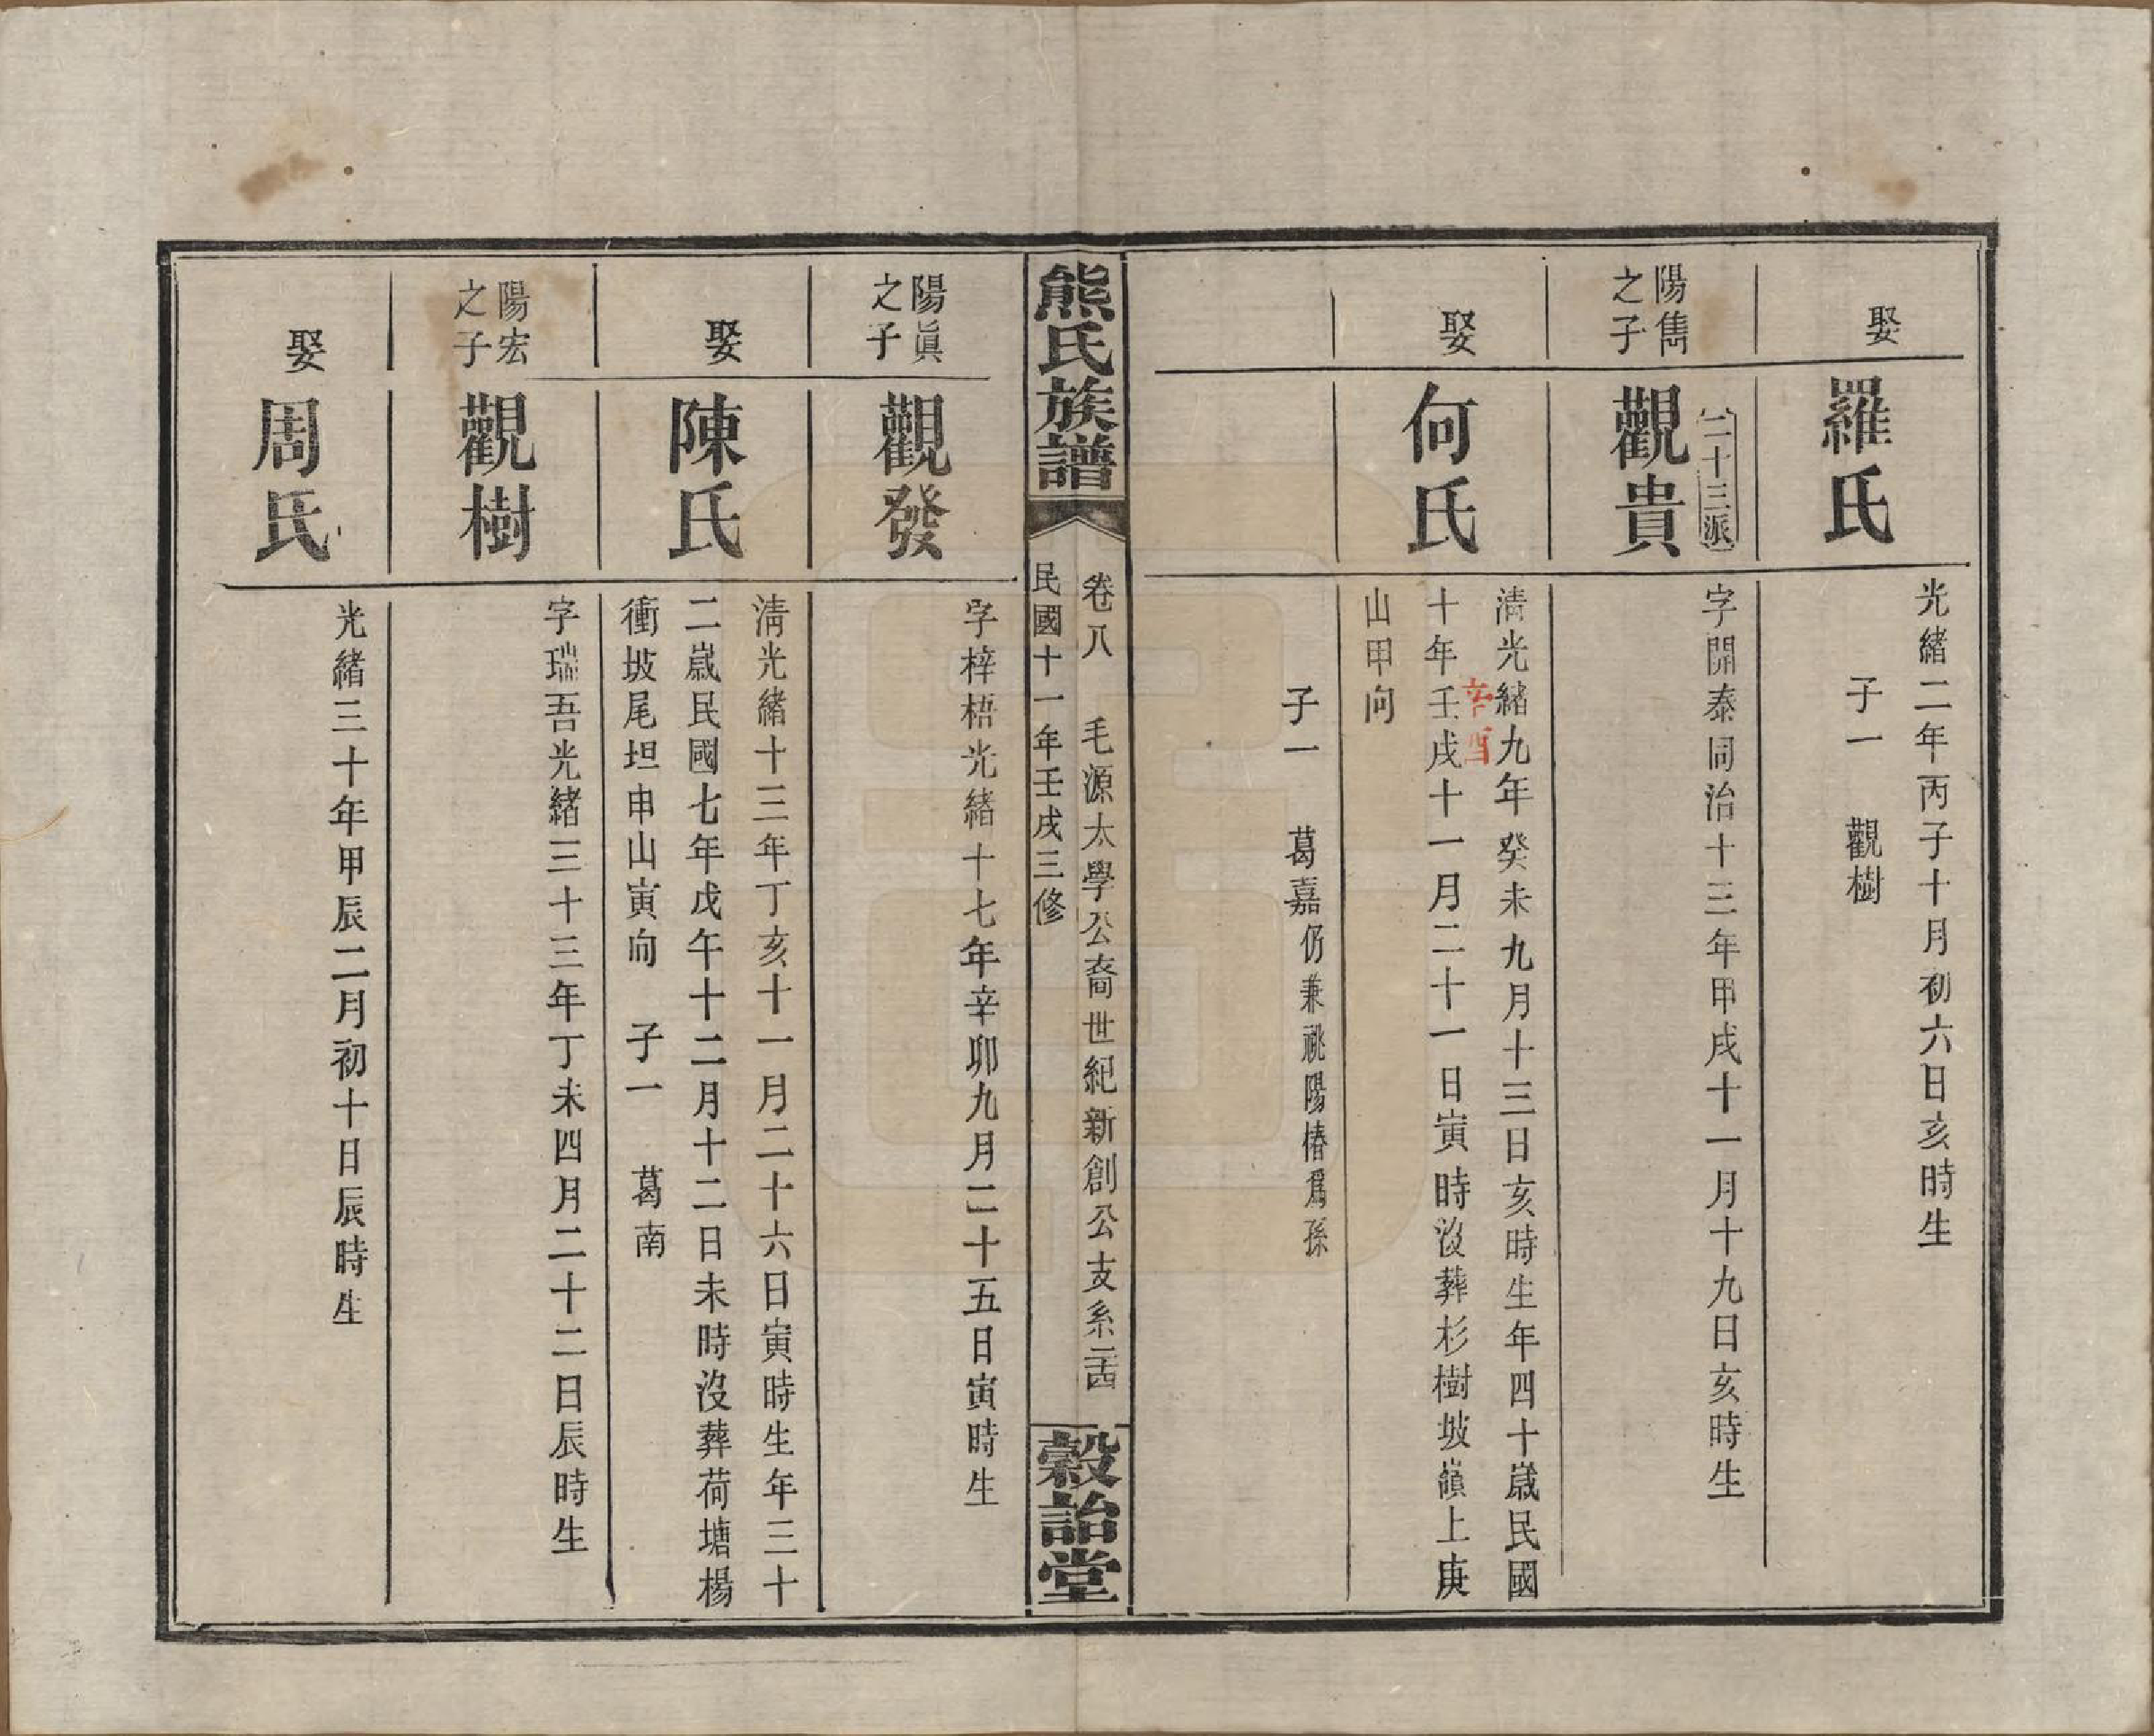 娶
羅氏
光緒二年丙子十月初六日亥時生
子一　觀樹
陽雋
之子
二十三派
觀貴
字開泰同治十三年甲戌十一月十九日亥時生
娶
何氏
清光緒九年癸未九月十三日亥時生年四十歲民國
辛酉
十年壬戌十一月二十一日寅時沒葬杉樹坡嶺上庚
山甲向
子一　葛嘉仍兼祧陽椿爲孫
熊氏族譜
卷八　毛源太學公裔世紀新創公支系二十四
民國十一年壬戌三修
穀詒堂
陽眞
之子
觀發
字梓梧光緒十七年辛卯九月二十五日寅時生
娶
陳氏
清光緒十三年丁亥十一月二十六日寅時生年三十
二歲民國七年戊午十二月十二日未時沒葬荷塘楊
衝坡尾坦申山寅向　子一　葛南
陽宏
之子
觀樹
字瑞吾光緒三十三年丁未四月二十二日辰時生
娶
周氏
光緒三十年甲辰二月初十日辰時生